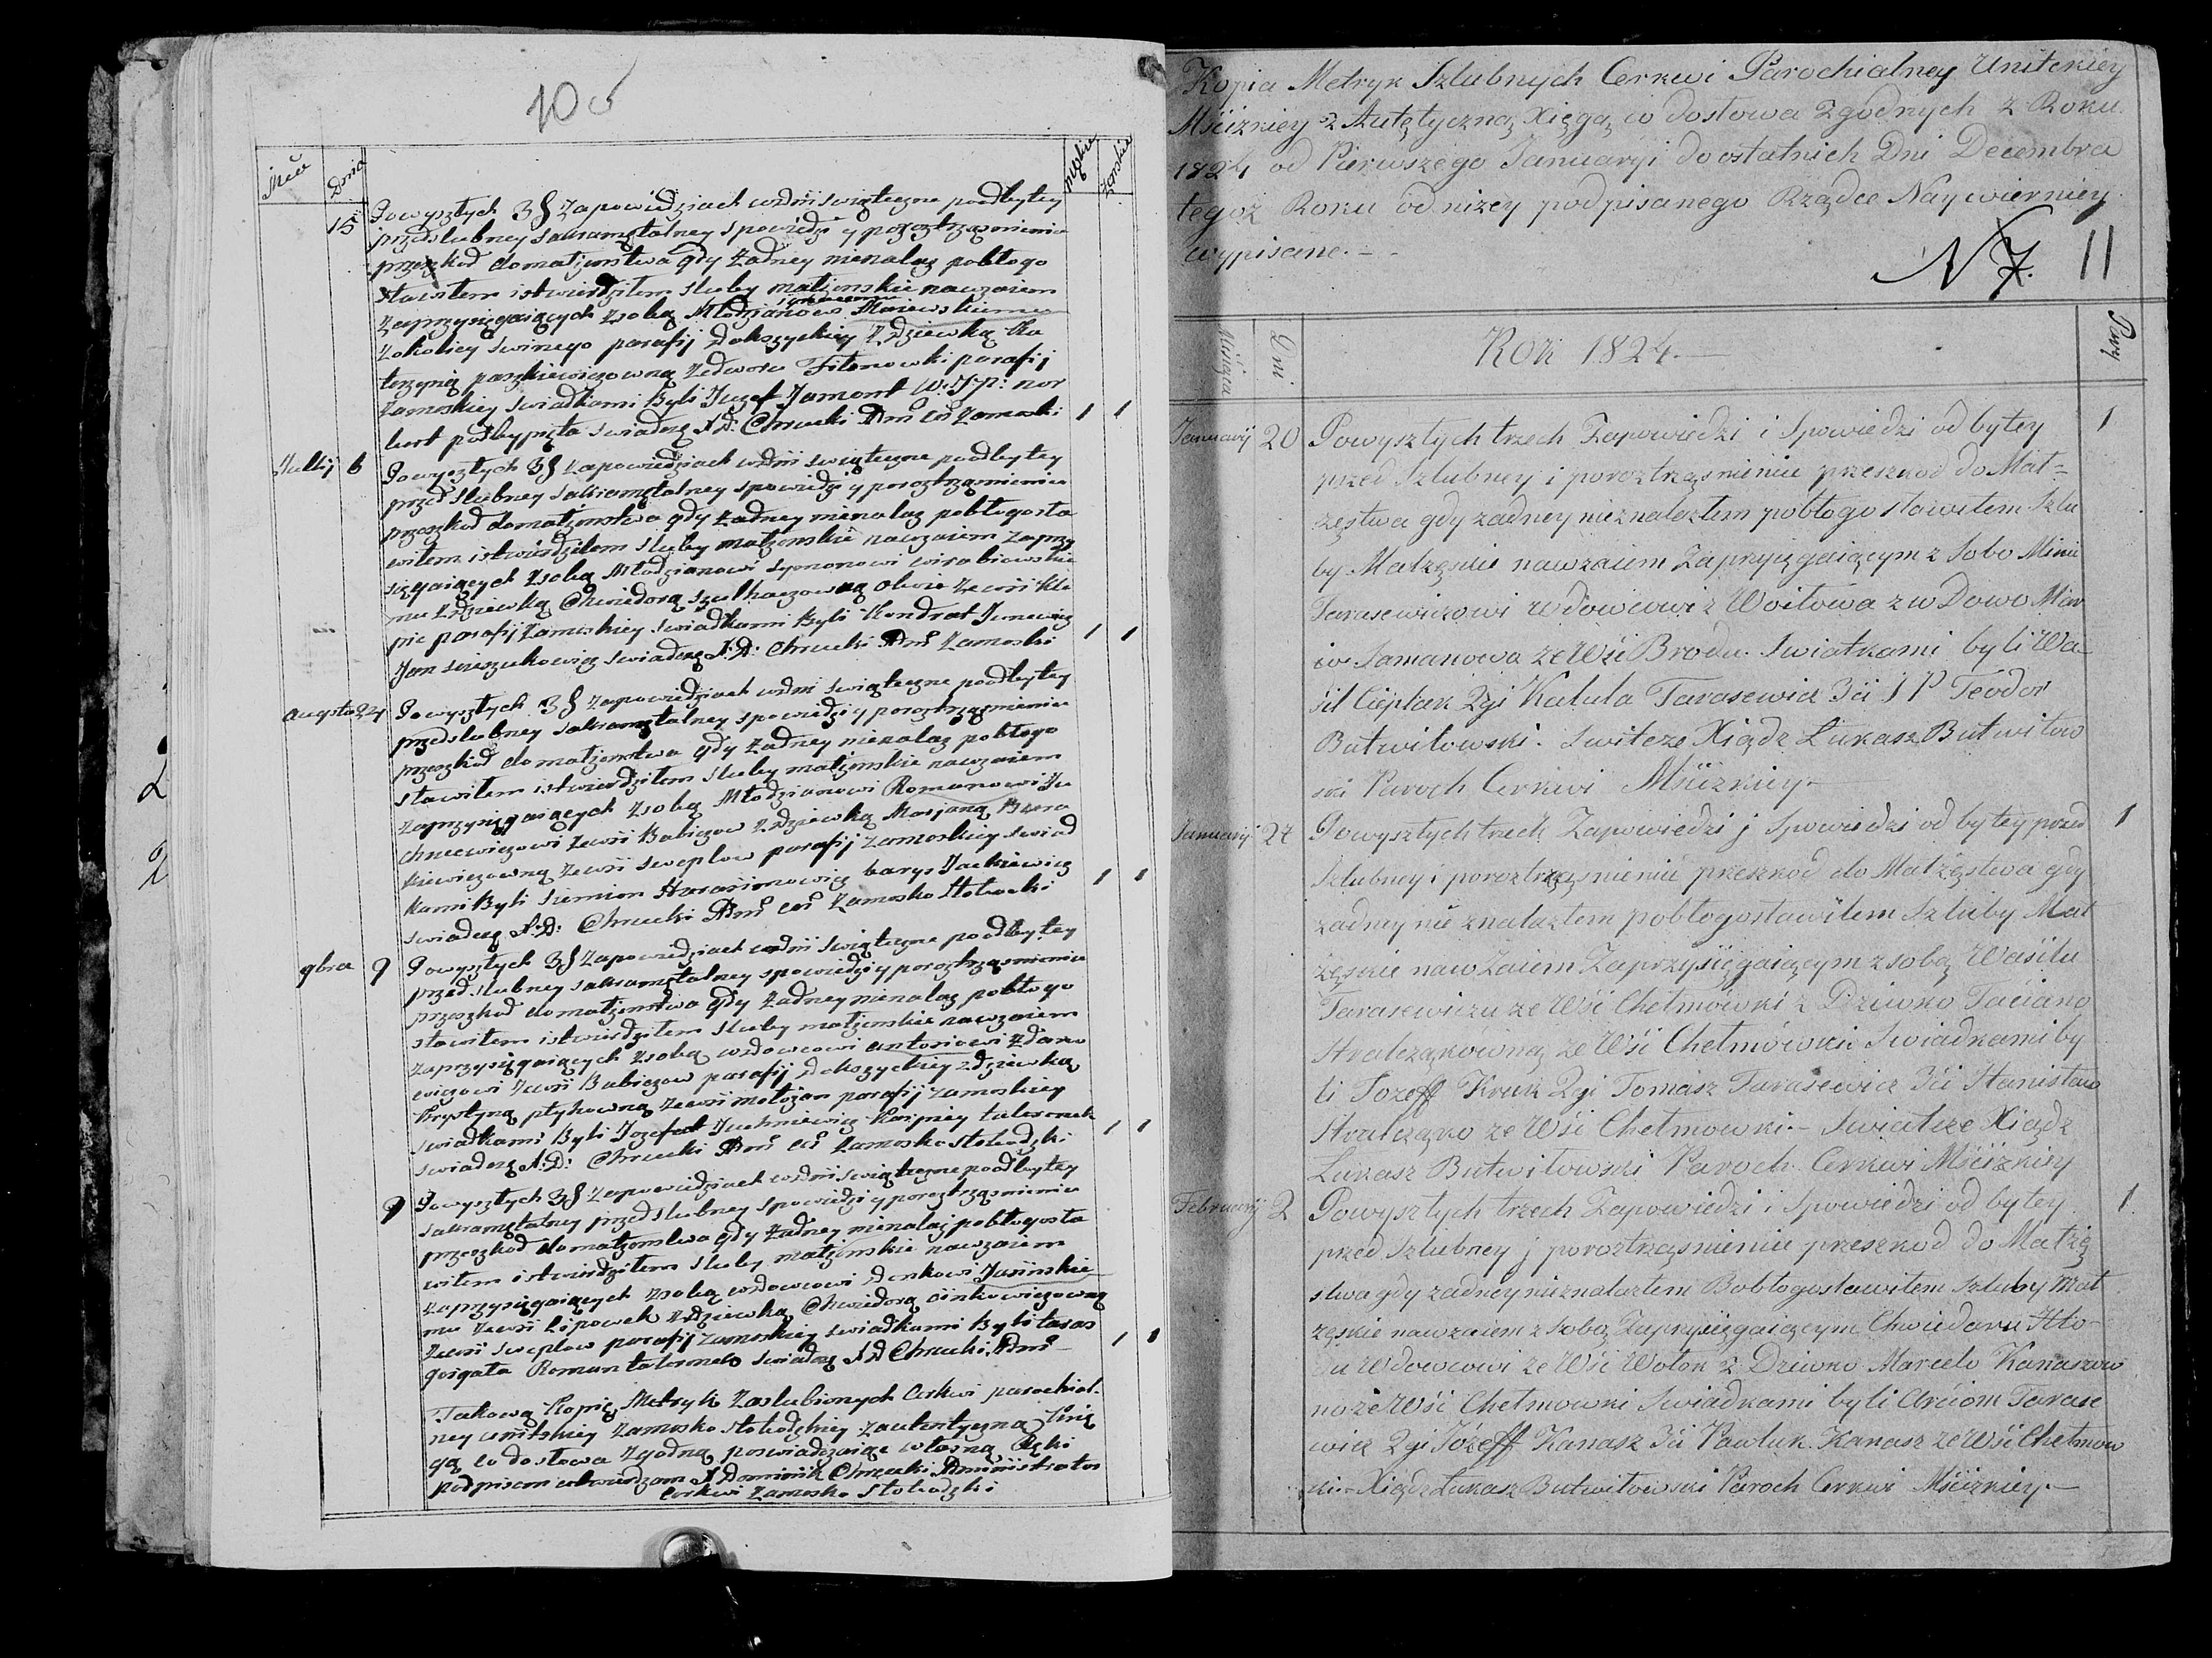 10
Mca Dnia męskie żenskie
15 Powyszłych 3§ Zapowiedziach wdni swiąteczne poodbytey
przedslubney sakramętalney spowiedzi y porostrząsnieniu
przeszkod domałżenstwa gdy żadney nienalaz pobłogo
sławiłem istwierdziłem sluby małżenskie nawzaiem
zaprzysięgaiących zsobą Młodzianowi Maiewskiemu
zokolicy swinego parafij Dokszyckiey zdziewką Ka
terzyną paszkiewiczowną zedworu Fitonowki parafij
zamoskiey swiadkami Byli Juzef Jamont W: J:P: nor
bert podbypięta swiadczę X.D. Chrucki Adm̄ Ceř Zamoski 1 1
Jullij 6 Powyszłych 3§ zapowiedziach wdni swiąteczne poodbytey
przed slubney sakramętalney spowiedzi y porostrząsnieniu
przeszkod domałżenstwa gdy żadney nienalaz pobłogosła
wiłem istwierdziłem sluby małżenskie nawzaiem zaprzy
sięgaiących zsobą Młodzianowi symonowi wirabiowskie
mu zdziewką Chwiedorą szulhaczowną obwie zewsi Kle
pic parafij zamoskiey swiadkami Byli Kondrat Juncewicz
Jan sieszukowicz swiadczę X.D. Chrucki Adm̄ Zamoski 1 1
augsta 24 Powyszłych 3§ zapowiedziach wdni swiąteczne poodbytey
przedslubney sakramętalney spowiedzi y porostrząsnieniu
przeszkod domałżenstwa gdy żadney nienalaz pobłogo
sławiłem istwierdziłem sluby małżenskie nawzaiem
zaprzysięgaiących zsobą Młodzianowi Romanowi Ju
chniewiczowi zewsi Babiczow zdziewką Marjaną Bura
kiewiczowną zewsi sweplow parafij zamoskiey swiad
kami Byli siemion Harasimowicz barys Jackiewicz
swiadczę X:D: Chrucki Adm̄ Ceř Zamosko Stobocki 1 1
9bra 9 Powyszłych 3§ zapowiedziach wdni swiąteczne poodbytey
przed slubney sakramętalney spowiedzi y porostrząsnieniu
przeszkod domałżenstwa gdy żadney nienalaz pobłogo
sławiłem istwierdziłem sluby małżenskie nawzaiem
zaprzysięgaiących zsobą wdowcowi antoniowi zdano
wiczowi zewsi Babiczow parafij Dokszyckiey zdziewką
Krystyną płykowną zewsi mołożan parafij zamoskiey
swiadkami Byli Jozefat Juchniewicz Karpiey
swiadczę X:D: Chrucki Adm̄ Ceř Zamosko Stobodzki 1 1
9 Powyszłych 3§ zapowiedziach wdni swiąteczne poodbytey
sakramętalney przedslubney spowiedzi y porostrząsnieniu
przeszkod domałżenstwa gdy żadney nienalaz pobłogosła
wiłem istwierdziłem sluby małżenskie nawzaiem
zaprzysięgaiących zsobą wdowcowi Denkowi Jasinskie
mu zewsi lipowek zdziewką Chwiedorą cinkowiczowną
zewsi sweplow parafij zamoskiey swiadkami Byli taras
gorgała Roman swiadczę X D Chrucki Adm̄ 1 1
Takową Kopię Metryk Zaslubionych Cerkwi parochial-
ney unitskiey Zamosko Stobodzkiey zautentyczną Xię
gą co dosłowa zgodną poswiadczaiąc własną Ręki
podpisem utwierdzam X Dominik Chrucki Administrator
Cerkwi Zamosko Stobodzki
Kopia Metryk Szlubnych Cerkwi Parochialney Unitskiey
Mściżkiey z Autętyczną Xięgą co dosłowa zgodnych z Roku
1824 od Pierwszego Januaryi do ostatnich Dni Decembra
tegoż Roku od niżey podpisanego Rządce Naywierniey
wypisane.
N 7. 11
Miesiąca Dni Rok 1824. Pary
Januaryi 20 Powyszłych trzech Zapowiedzi i Spowiedzi od bytey 1
przed Szlubney i poroztrząsnieniu przeszkod do Mał=
zęstwa gdy zadney nieznalazłem pobłogosławiłem Szlu
by Małzęskie nawzaiem Zaprzysięgaiącym z Sobo Mini
Tarasewiczowi Wdowcowi z Woitowa z w Dowo Mar
io Samanowa ze Wsi Brodu. Swiatkami byli Wa-
sil Cieplak 2gi Kaluta Tarasewicz 3ci J P Teodor
Butwiłowski. Switcze Xiądz Łukasz Butwiłow
ski Paroch Cerkwi Mściżkiey
Januaryi 27 Powyszłych trzech Zapowiedzi j Spowiedzi od bytey przed 1
Szlubney i poroztrząsnieniu przeszkod do Małzęstwa gdy
zadney nie znalazłem pobłogosławiłem Szluby Mał
zęskie nawzaiem Zaprzysięgaiącym z sobą Wasilu
Tarasewiczu ze Wśi Chełmowki z Dziwko Taciano
Strałcząkowną ze Wśi Chełmowki Swiadkami by
li Jozeff Kruk 2gi Tomasz Tarasewicz 3ci Stanisław
Strałcząko ze Wśi Chełmowki.- Swiatcze Xiądz
Łukasz Butwiłowski Paroch Cerkwi Mściżkiey
Februaryi 2 Powyszłych trzech Zapowiedzi i Spowiedzi od bytey 1.
przed Szlubney j poroztrząsnieniu przeszkod do Małzę
stwa gdy zadney nieznalazłem Pobłogosławiłem Szluby Mał
zęskie nawzaiem z Sobą Zaprzysięgaiącym Chwiedaru
Wdowcowi ze Wśi Wołok z Dziwko Marcelo Kanaszow
no ze Wśi Chełmowki Swiadkami byli Arciom Tarase
wicz 2gi Józeff Kanasz 3ci Pawluk Kanasz ze Wśi Chełmow
ki.- Xiądz Łukasz Butwiłowski Paroch Cerkwi Mściżkiey.-